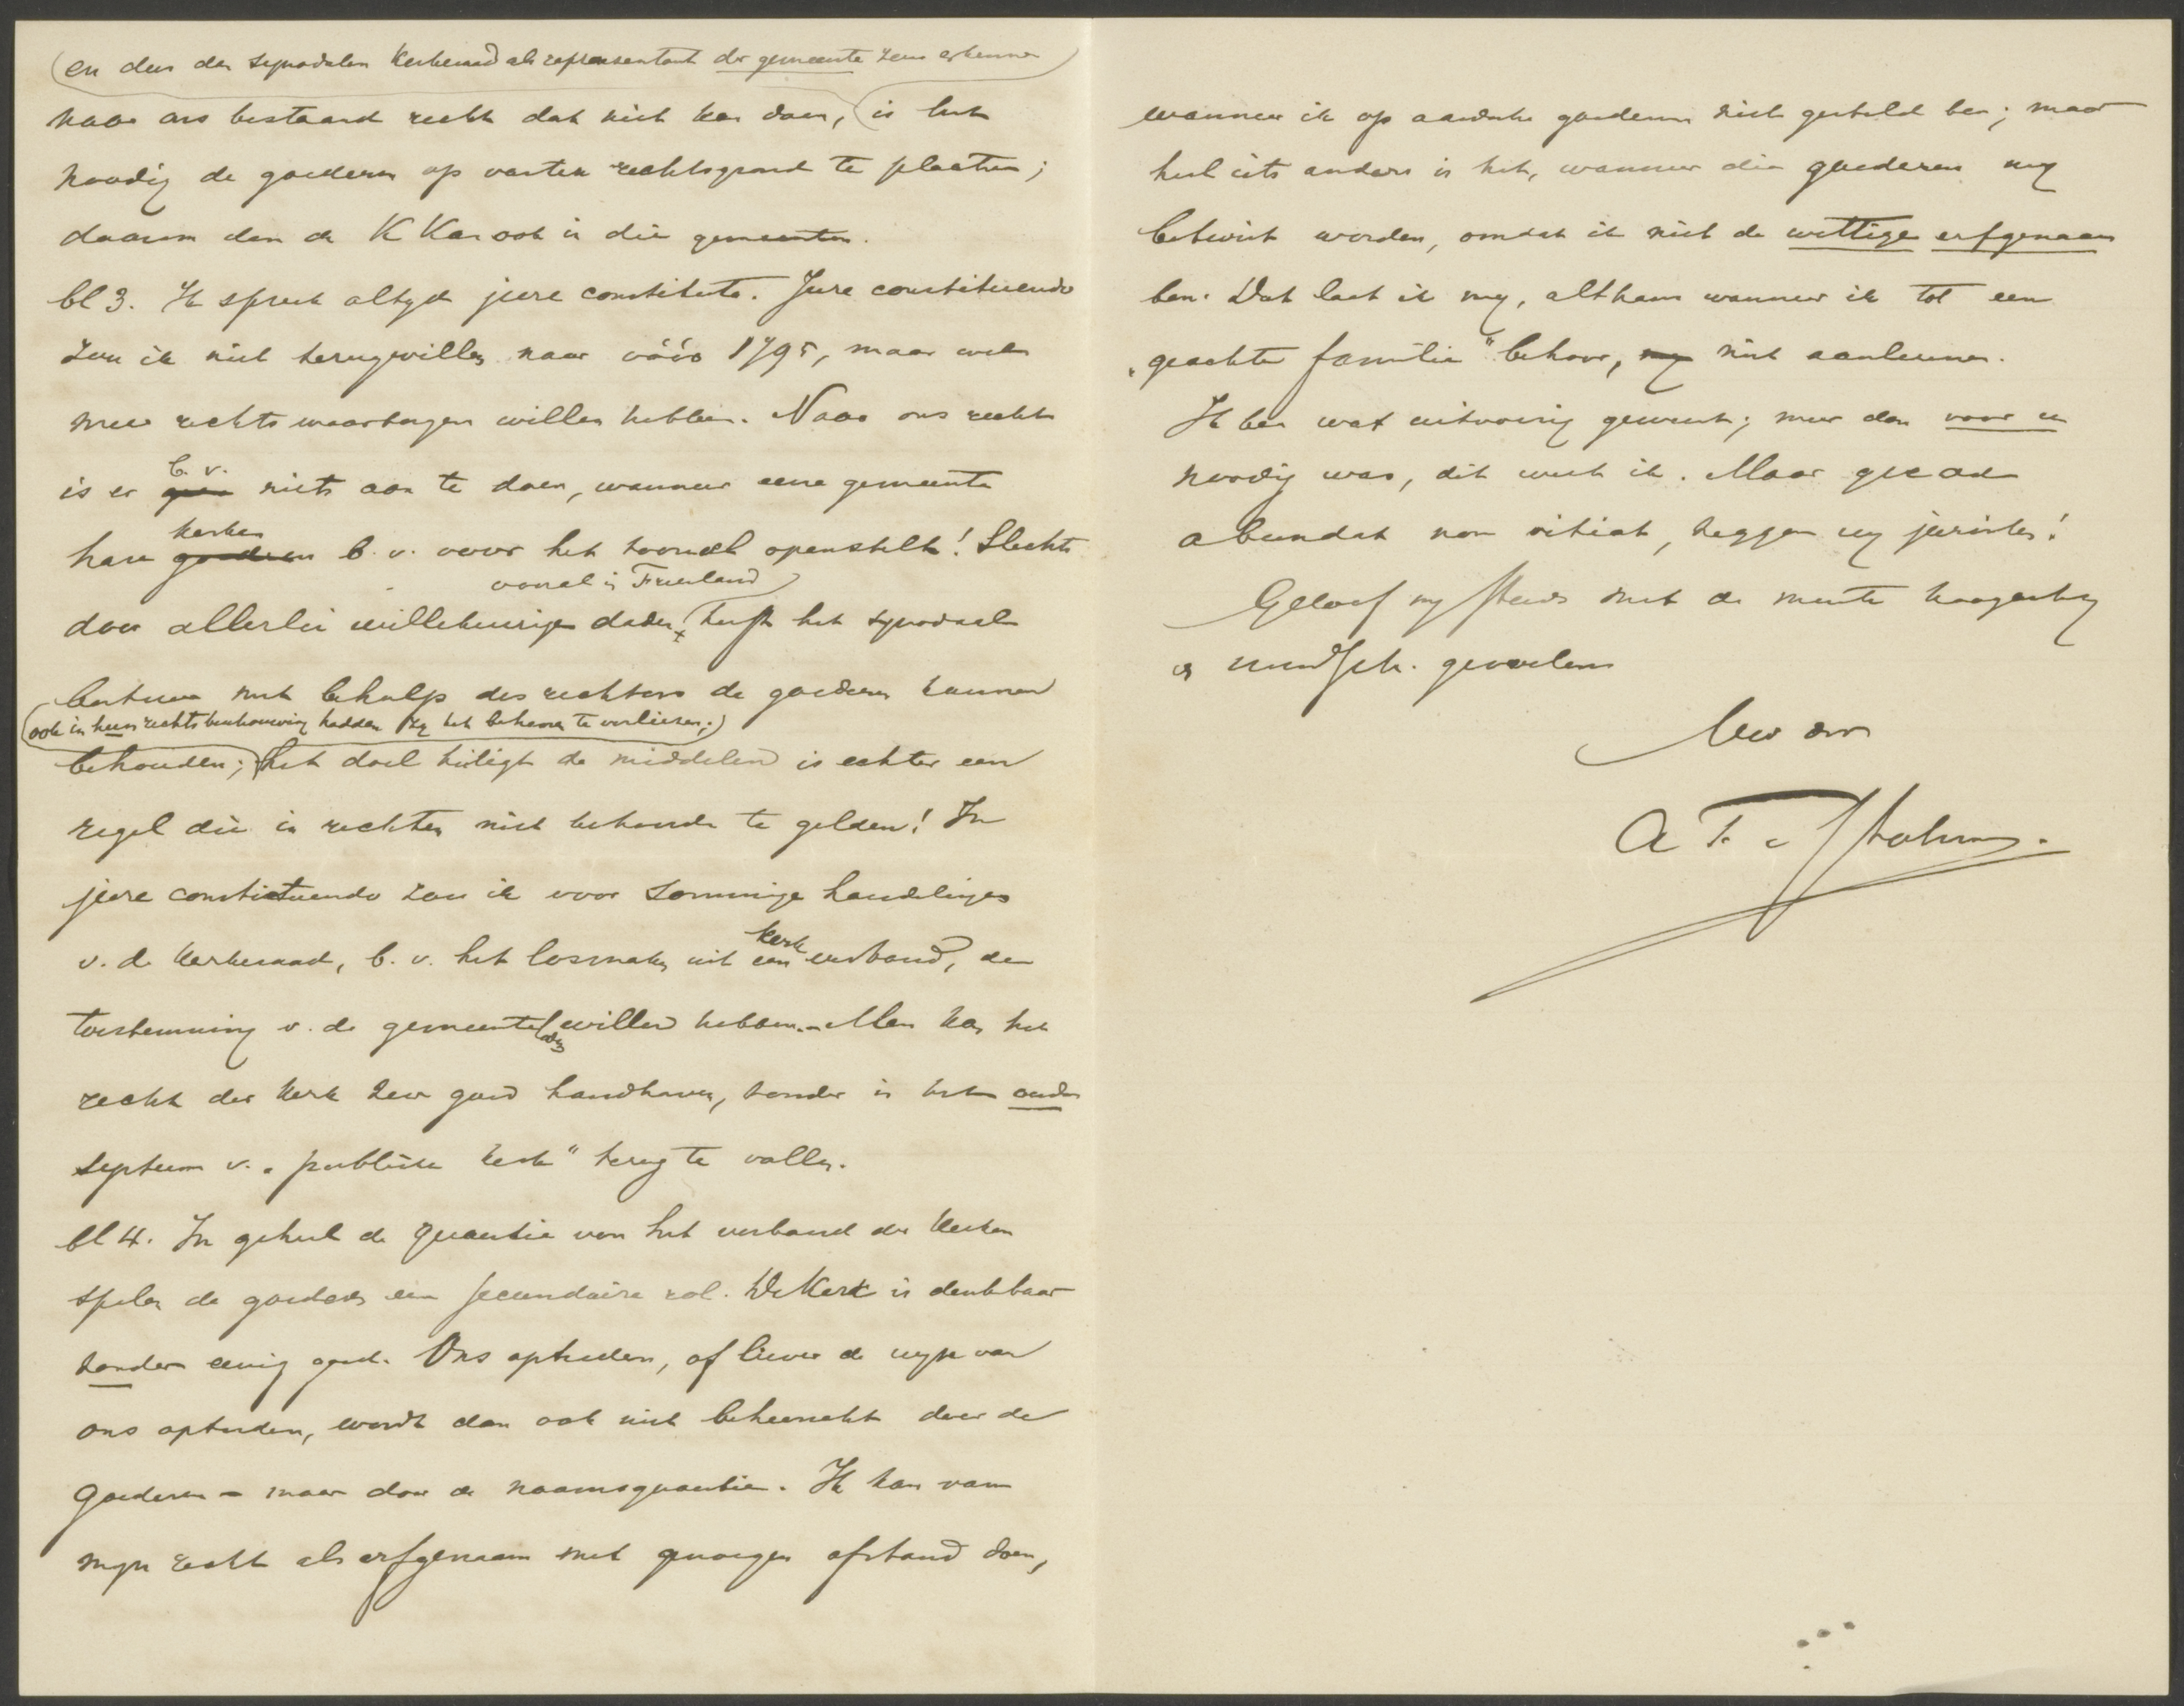 (en dus den synodalen kerkeraad als representant der gemeente zou erkennen)
naar ons bestaand recht dat niet kan doen, (is het
noodig de goederen op vasten rechtsgrond te plaatsen;
daarom dan de K Kas ook in die gemeenten.
bl 3. Ik spreek altyd jure constituto. Jure constituendo
zou ik niet terugwillen naar vóór 1795, maar wel
meer rechtswaarborgen willen hebben. Naar ons recht
b. v.
is er geen niets aan te doen, wanneer eene gemeente
kerken
hare goederen b. v. voor het tooneel openstelt! Slechts
vooral in Friesland)
door allerlei willekeurige daden, heeft het synodaal
bestuur met behulp des rechters de goederen kunnen
(ook in hun rechtsbeschouwing hadden zy het behooren te verliezen;)
behouden; het doel heiligt de middelen is echter een
regel die in rechten niet behoorde te gelden! In
jure constituendo zou ik voor sommige handelingen
kerk
v. d. kerkeraad, b. v. het losmaken uit een verband, de
toestemming v. de gemeenteleden willen hebben. - Men kan het
recht der kerk zeer goed handhaven, zonder in het oude
systeem v. "publieke kerk" terug te vallen.
bl 4. In geheel de quaestie van het verband der kerken
spelen de goederen een secundaire rol. De Kerk is denkbaar
zonder eenig goed. Ons optreden, of liever de wyze van
ons optreden, wordt dan ook niet beheerscht door de
goederen - maar door de naamsquaestie. Ik kan van
myn recht als erfgenaam met genoegen afstand doen,
wanneer ik op aardsche goederen niet gesteld ben; maar
heel iets anders is het, wanneer die goederen my
betwist worden, omdat ik niet de wettige erfgenaam
ben. Dat laat ik my, althans wanneer ik tot een
"geachte familie" behoor, my niet aanleunen.
Ik ben wat uitvoerig geweest; meer dan voor u
noodig was, dit weet ik. Maar quod
abundat non vitiat, zeggen wy juristen!
Geloof my steeds met de meeste hoogachting
en vriendsch. gevoelens
Uw dr